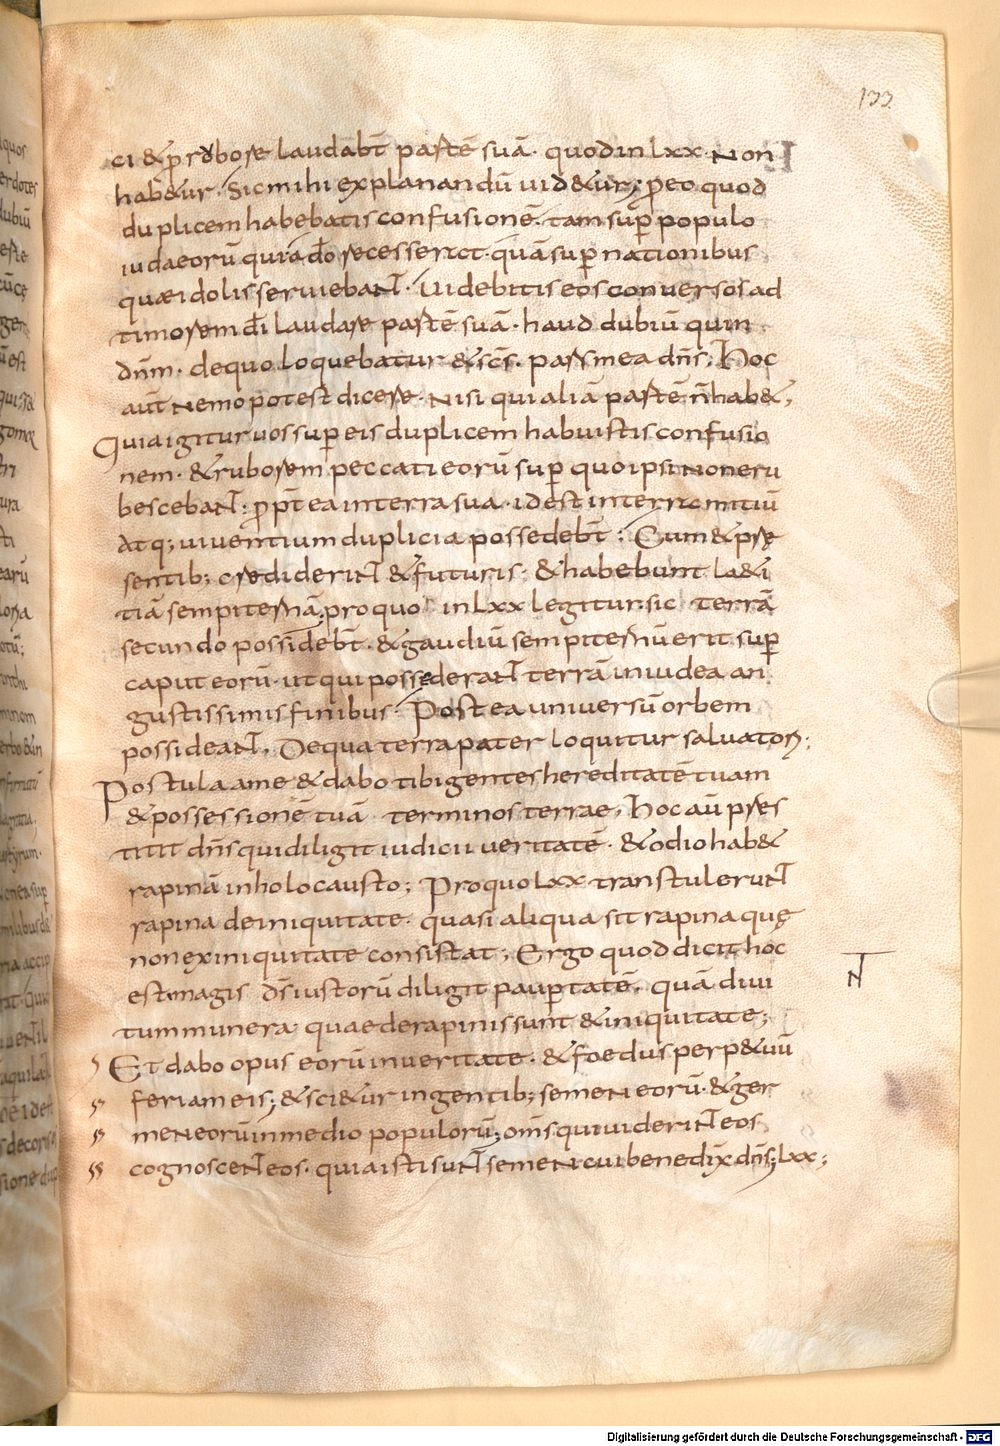 133
ci & p̱ rubore laudabt̄ partē suā· quod in lxx· non
hab&ur· Sic mihi explanandū uid&ur; p̱ eo quod
duplicem habebatis confusionē· tam sup̱ populo
iudaeorū qui a do̅ recesserat· quā sup̱ nationibus
quae idolis seruiebant· Uidebitis eos conuersos ad
timorem dī laudare partē suā· haud dubiū quin
dn̄m· de quo loquebatur & sc̄s· pars mea dn̄s; Hoc
aūt nemo potest dicere· nisi qui aliā partē n̄ hab&,
Quia igitur uos sup̱ eis duplicem habuistis confusio
nem· & ruborem peccati eorū sup̱ quo ipsi non eru
bescebant· p̱pt̄ea in terra sua· id est in terra mitiū
atq; uiuentium duplicia possedebt̄· Cum & prę
sentib; crediderint & futuris· & habebunt l&i
tiā sempiternā, pro quo in lxx legitur· sic terrā
secundo possidebt̄· & gaudiū sempiternū erit sup̱
caput eorū· ut qui possederant terrā in iudea an
gustissimis finibus· Postea uniuersū orbem
possideant, De qua terra pater loquitur saluatori·
Postula a me & dabo tibi gentes hereditatē tuam
& possessionē tuā terminos terrae, Hoc aū pres
titit dn̄s qui diligit iudicii ueritatē· & odio hab&
rapinā in holocausto; Pro quo lxx transtulerunt
rapina de iniquitate· quasi aliqua sit rapina quę
non ex iniquitate consistat; Ergo quod dicit hoc
est· magis ds̄ iustorū diligit paup̱tatē, quā diui
tum munera quae de rapinis sunt & iniquitate;
Et dabo opus eorū in ueritate· & foedus perp&uū
feriam eis; & sci&ur in gentib; semen eorū· & ger
men eorū in medio populorū; om̄s qui uiderint eos
cognoscent eos· quia isti sunt semen cui benedix̄ dn̄s; lxx;
Digitalisierung gefördert durch die Deutsche Forschungsgemeinschaft - DFG